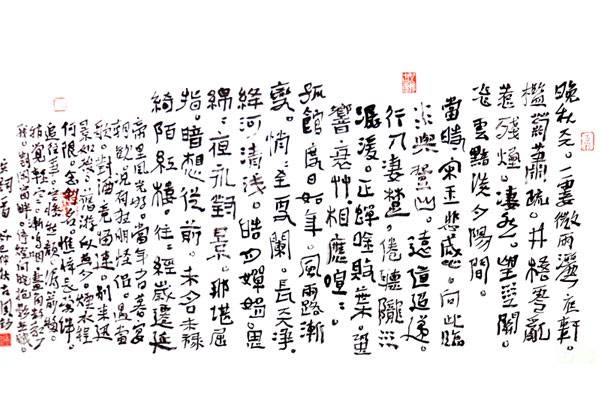 晚秋天。一霎微雨灑庭軒。
檻菊蕭疏。井梧零亂
惹殘煙。凄然。望江關。
飛雲黯淡夕陽間。
當時宋玉悲感。向此臨
水與登山。遠道迢遞。
行人凄楚。倦聽隴水
潺湲。正蟬吟敗葉。蛩
響衰艸。相應喧〻。
孤館度日如年。風露漸
變。悄〻至更闌。長天淨。
絳河清淺。皓月嬋娟。思
綿〻。夜永對景。那堪屈
指。暗想從前。未名未祿
綺陌紅樓。往〻經歲遷延
帝里風光好。當年少日暮宴
朝歡。況有狂朋怪侶。遇當
歌。對酒競留連。別來迅
景如梭。舊游似夢。煙水程
何限。念利名。憔悴長縈絆。
追往事。空慘愁顏。漏箭移。
稍覺輕寒。漸嗚咽畫角數聲
殘。對閑窗畔。停燈向曉。抱影無眠。